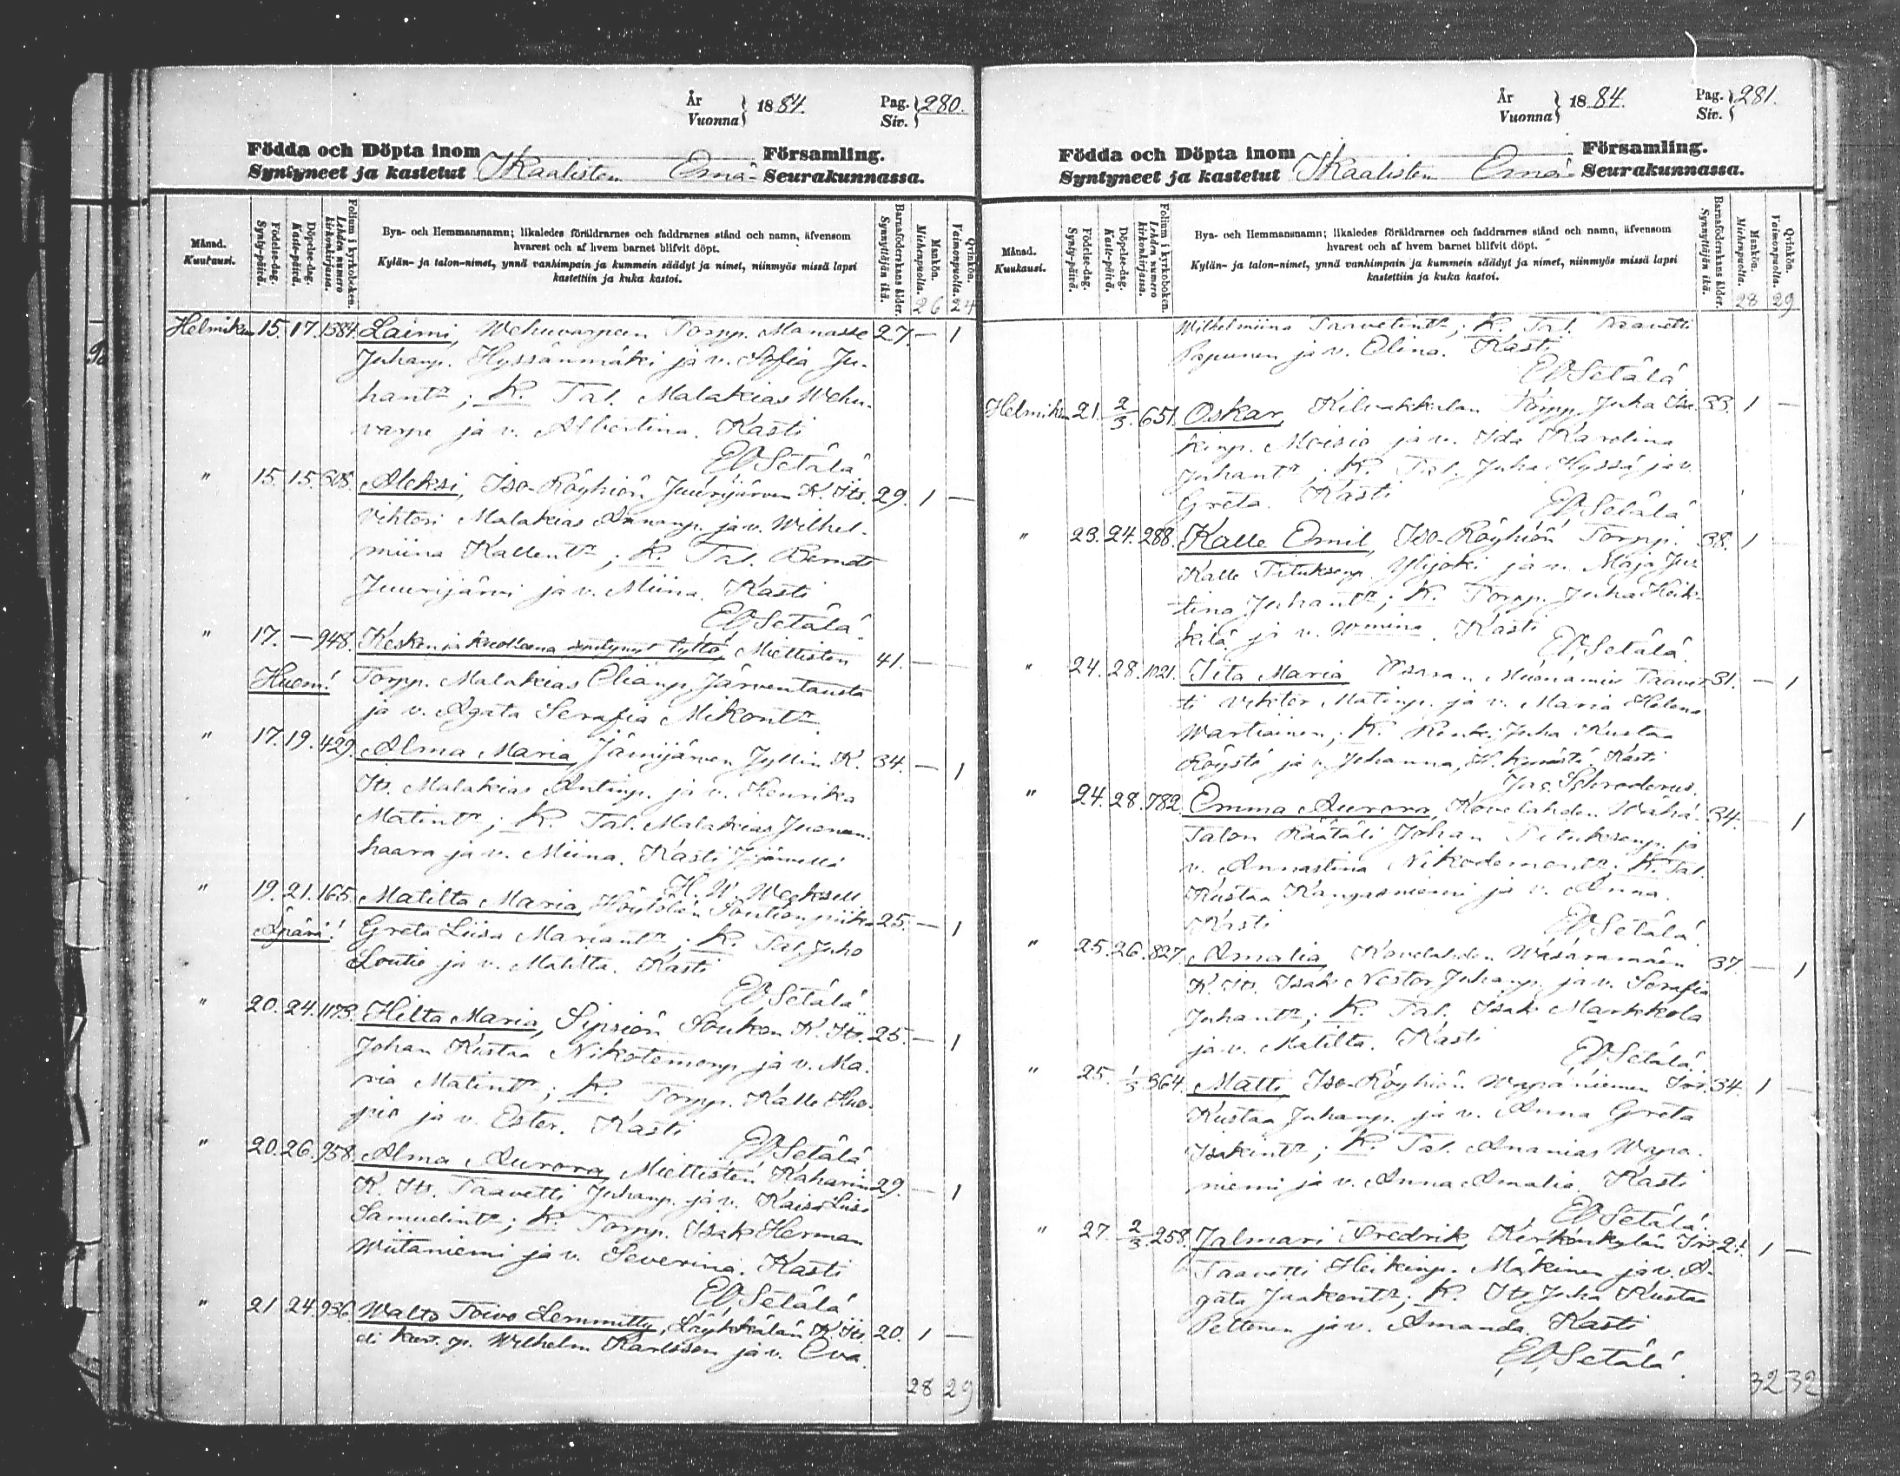 År Vuonna } 1884. Pag. Siv. } 280.
Födda och Döpta inom Församling.
Syntyneet ja kastetut Ikaalisten Emä- Seurakunnassa.
Månad. Kuukausi.
Födelse-dag. Synty-päivä.
Döpelse-dag. Kaste-päivä.
Folium i kyrkoboken. Lehden numero kirkonkirjassa.
Bya- och Hemmansnamn; likaledes föräldrarnes och faddrarnes stånd och namn, äfvensom
hvarest och af hvem barnet blifvit döpt.
Kylän- ja talon-nimet, ynnä vanhimpain ja kummein säädyt ja nimet, niinmyös missä lapsi
kastettiin ja kuka kastoi.
Barnaföderskans ålder. Synnyttäjän ikä.
Mankön. Miehenpuolta. 26
Qvinkön. Vaimonpuolta. 24
Helmikuu 15. 17. 1584. Laimi, Wehuvarpeen Torpp. Manasse 27 — 1
Juhanp. Hyssänmäki ja v. Sofia Ju-
hantr; K. Tal. Malakias Wehu-
varpe ja v. Albertina. Kasti
EV Setälä.
" 15. 15. 608. Aleksi, Iso-Röyhiön Juurijärven K. Its. 29. 1 —
Vihtori Malakias Ananp. ja v. Wilhel-
miina Kallentr; K. Tal. Berndt
Juurijärvi ja v. Miina. Kasti
EV Setälä.
" 17. — 948. Kesken ja kuolleena syntynyt tyttö, Miettisten 41. — —
Huom! Torpp. Malakias Elianp. Järventausta
ja v. Agata Serafia Mikontr
" 17. 19. 429. Alma Maria, Jämijärven Jyllin K. 34. — 1
Its. Malakias Antinp. ja v. Henrika
Matintr; K. Tal. Malakias Juonen-
haara ja v. Miina. Kasti Jjärvellä
H. W. Wecksell
" 19. 21. 165. Matilta Maria, Höytölän Soution piika 25. — 1
Äpärä! Greta Liisa Mariantr; K. Tal. Juho
Soutio ja v. Matilta. Kasti
EV Setälä.
" 20. 24. 1173. Hilta Maria, Sipsiön Soukon K. Its. 25. — 1
Johan Kustaa Nikotemonp. ja v. Ma-
ria Matintr; K. Torpp. Kalle Huo-
pio ja v. Ester. Kasti
EV Setälä.
" 20. 26. 958. Alma Aurora, Miettisten Kaharin 29. — 1
K. Its. Taavetti Juhanp. ja v. Kaisa Liisa
Samuelintr; K. Torpp. Isak Herman
Wiitaniemi ja v. Severina. Kasti
EV Setälä
" 21 24. 936. Walto Toivo Lemmitty, Läykkälän K. Its. 20. 1 —
Wilhelm Karlsson ja v. Eva
28 29
År Vuonna } 1884. Pag. Siv. } 281.
Födda och Döpta inom Församling.
Syntyneet ja kastetut Ikaalisten Emä- Seurakunnassa.
Månad. Kuukausi.
Födelse-dag. Synty-päivä.
Döpelse-dag. Kaste-päivä.
Folium i kyrkoboken. Lehden numero kirkonkirjassa.
Bya- och Hemmansnamn; likaledes föräldrarnes och faddrarnes stånd och namn, äfvensom
hvarest och af hvem barnet blifvit döpt.
Kylän- ja talon-nimet, ynnä vanhimpain ja kummein säädyt ja nimet, niinmyös missä lapsi
kastettiin ja kuka kastoi.
Barnaföderskans ålder. Synnyttäjän ikä.
Mankön. Miehenpuolta. 28
Qvinkön. Vaimonpuolta. 29
Wilhelmiina Taavetintr; K. Tal. Taavetti
Papunen ja v. Elina. Kasti
EV Setälä
Helmikuu 21. 2/3 651. Oskar, Kilvakkalan Torpp. Juha Isa- 33. 1 —
kinp. Moisio ja v. Ida Karolina
Juhantr; K. Tal. Juha Hyssä ja v.
Greta. Kasti EV Setälä
" 23. 24. 288. Kalle Emil, Iso-Röyhiön Torpp. 38. 1 —
Kalle Tituksenp. Ylijoki ja v. Maja Jus-
tina Juhantr; K. Torpp. Juha Heik-
kilä ja v. Wmiina. Kasti
EV Setälä.
" 24. 28. 1021. Tita Maria, Muonamies Taavet- 31. — 1
ti Vihtor Matinp. ja v. Maria Helena
Wartiainen; K. Juha Kustaa
Röystö ja v. Johanna, Kasti
Jac. Schroderus.
" 24. 28. 782. Emma Aurora, Kovelahden Wähä- 34. — 1
Talon Räätäli Johan Tituksenp. ja
v. Annastina Nikodemontr; K. Tal.
Kustaa Kangasniemi ja v. Anna.
Kasti EV Setälä.
" 25. 26. 827. Amalia, Kovelahden Wasaramäen 37. — 1
K. Its. Isak Nestor Juhanp. ja v. Serafia
Juhantr; K. Tal. Isak Markkola
ja v. Matilta. Kasti
EV Setälä.
" 25. 1/3 364. Matti, Iso-Röyhiön Wapaniemen Its. 34. 1 —
Kustaa Juhanp. ja v. Anna Greta
Isakintr; K. Tal. Ananias Wapa-
niemi ja v. Anna Amalia. Kasti
EV Setälä.
" 27. 2/3 258. Jalmari Fredrik, Kirkonkylän Its. 21. 1 —
Taavetti Heikinp. Mäkinen ja v. A-
gata Jaakontr; K. Its. Juha Kustaa
Pettonen ja v. Amanda. Kasti
EV Setälä.
32 32